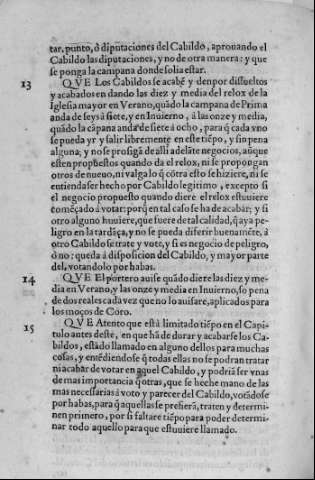 tar, punto, ò diputaciones del Cabildo, aprouando el
Cabildo las diputaciones, y no de otra manera: y que
se ponga la campana donde solia estar.
13 QVE Los Cabildos se acabẽ y den por dissueltos
y acabados en dando las diez y media del relox de la
Iglesia mayor en Verano, quãdo la campana de Prima
anda de seys à siete, y en Inuierno, à las onze y media,
quãdo la cãpana anda de siete à ocho, para q̃ cada vno
se pueda yr y salir libremente en este tiẽpo, y sin pena
alguna; y no se prosiga de alli adelãte negocios, aũque
esten propuestos quando da el relox, ni se propongan
otros de nueuo, ni valga lo q̃ cõtra esto se hiziere, ni se
entienda ser hecho por Cabildo legitimo, excepto si
el negocio propuesto quando diere el relox estuuiere
comẽçado à votar: porq̃ en tal caso se ha de acabar; y si
otro alguno huuiere, que fuere de tal calidad, q̃ aya pe-
ligro en la tardãça, y no se pueda diferir buenamẽte, à
otro Cabildo se trate y vote, y si es negocio de peligro,
ò no: queda à disposicion del Cabildo, y mayor parte
del, votandolo por habas.
14 QVE El portero auise quãdo diere las diez y me-
dia en Verano, y las onze y media en Inuierno, so pena
de dos reales cada vez que no lo auisare, aplicados para
los moços de Coro.
15 QVE Atento que està limitado tiẽpo en el Capi-
tulo antes deste, en que hã de durar y acabarse los Ca-
bildos, estãdo llamado en alguno dellos para muchas
cosas, y entẽdiendose q̃ todas ellas no se podran tratar
ni acabar de votar en aquel Cabildo, y podria ser vnas
de mas importancia q̃ otras, que se heche mano de las
mas necessarias à voto y parecer del Cabildo, votãdose
por habas, para q̃ aquellas se prefierã, traten y determi-
nen primero, por si faltare tiẽpo para poder determi-
nar todo aquello para que estuuiere llamado.